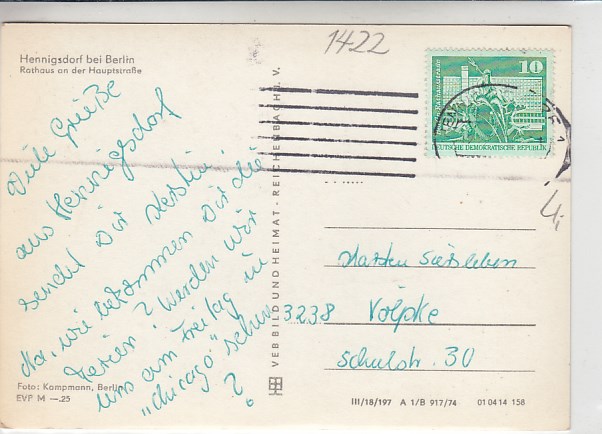 Hennigsdorf bei Berlin
Rathaus an der Hauptstraße
1422
10
DEUTSCHE DEMOKRATISCHE REPUBLIK
Viele Grüße
aus Hennigsdorf
sendet Dir Kerstin.
Na, wie bekommen Dir die
Ferien? Werden wir
uns am Freitag in
"Chicago" sehen
?
VEB BILD UND HEIMAT · REICHENBACH i. V.
Karsten
3238 Völpke
Schulstr. 30
Foto: Kampmann, Berlin
EVP M —.25
III/18/197 A 1/B 917/74 01 04 14 158